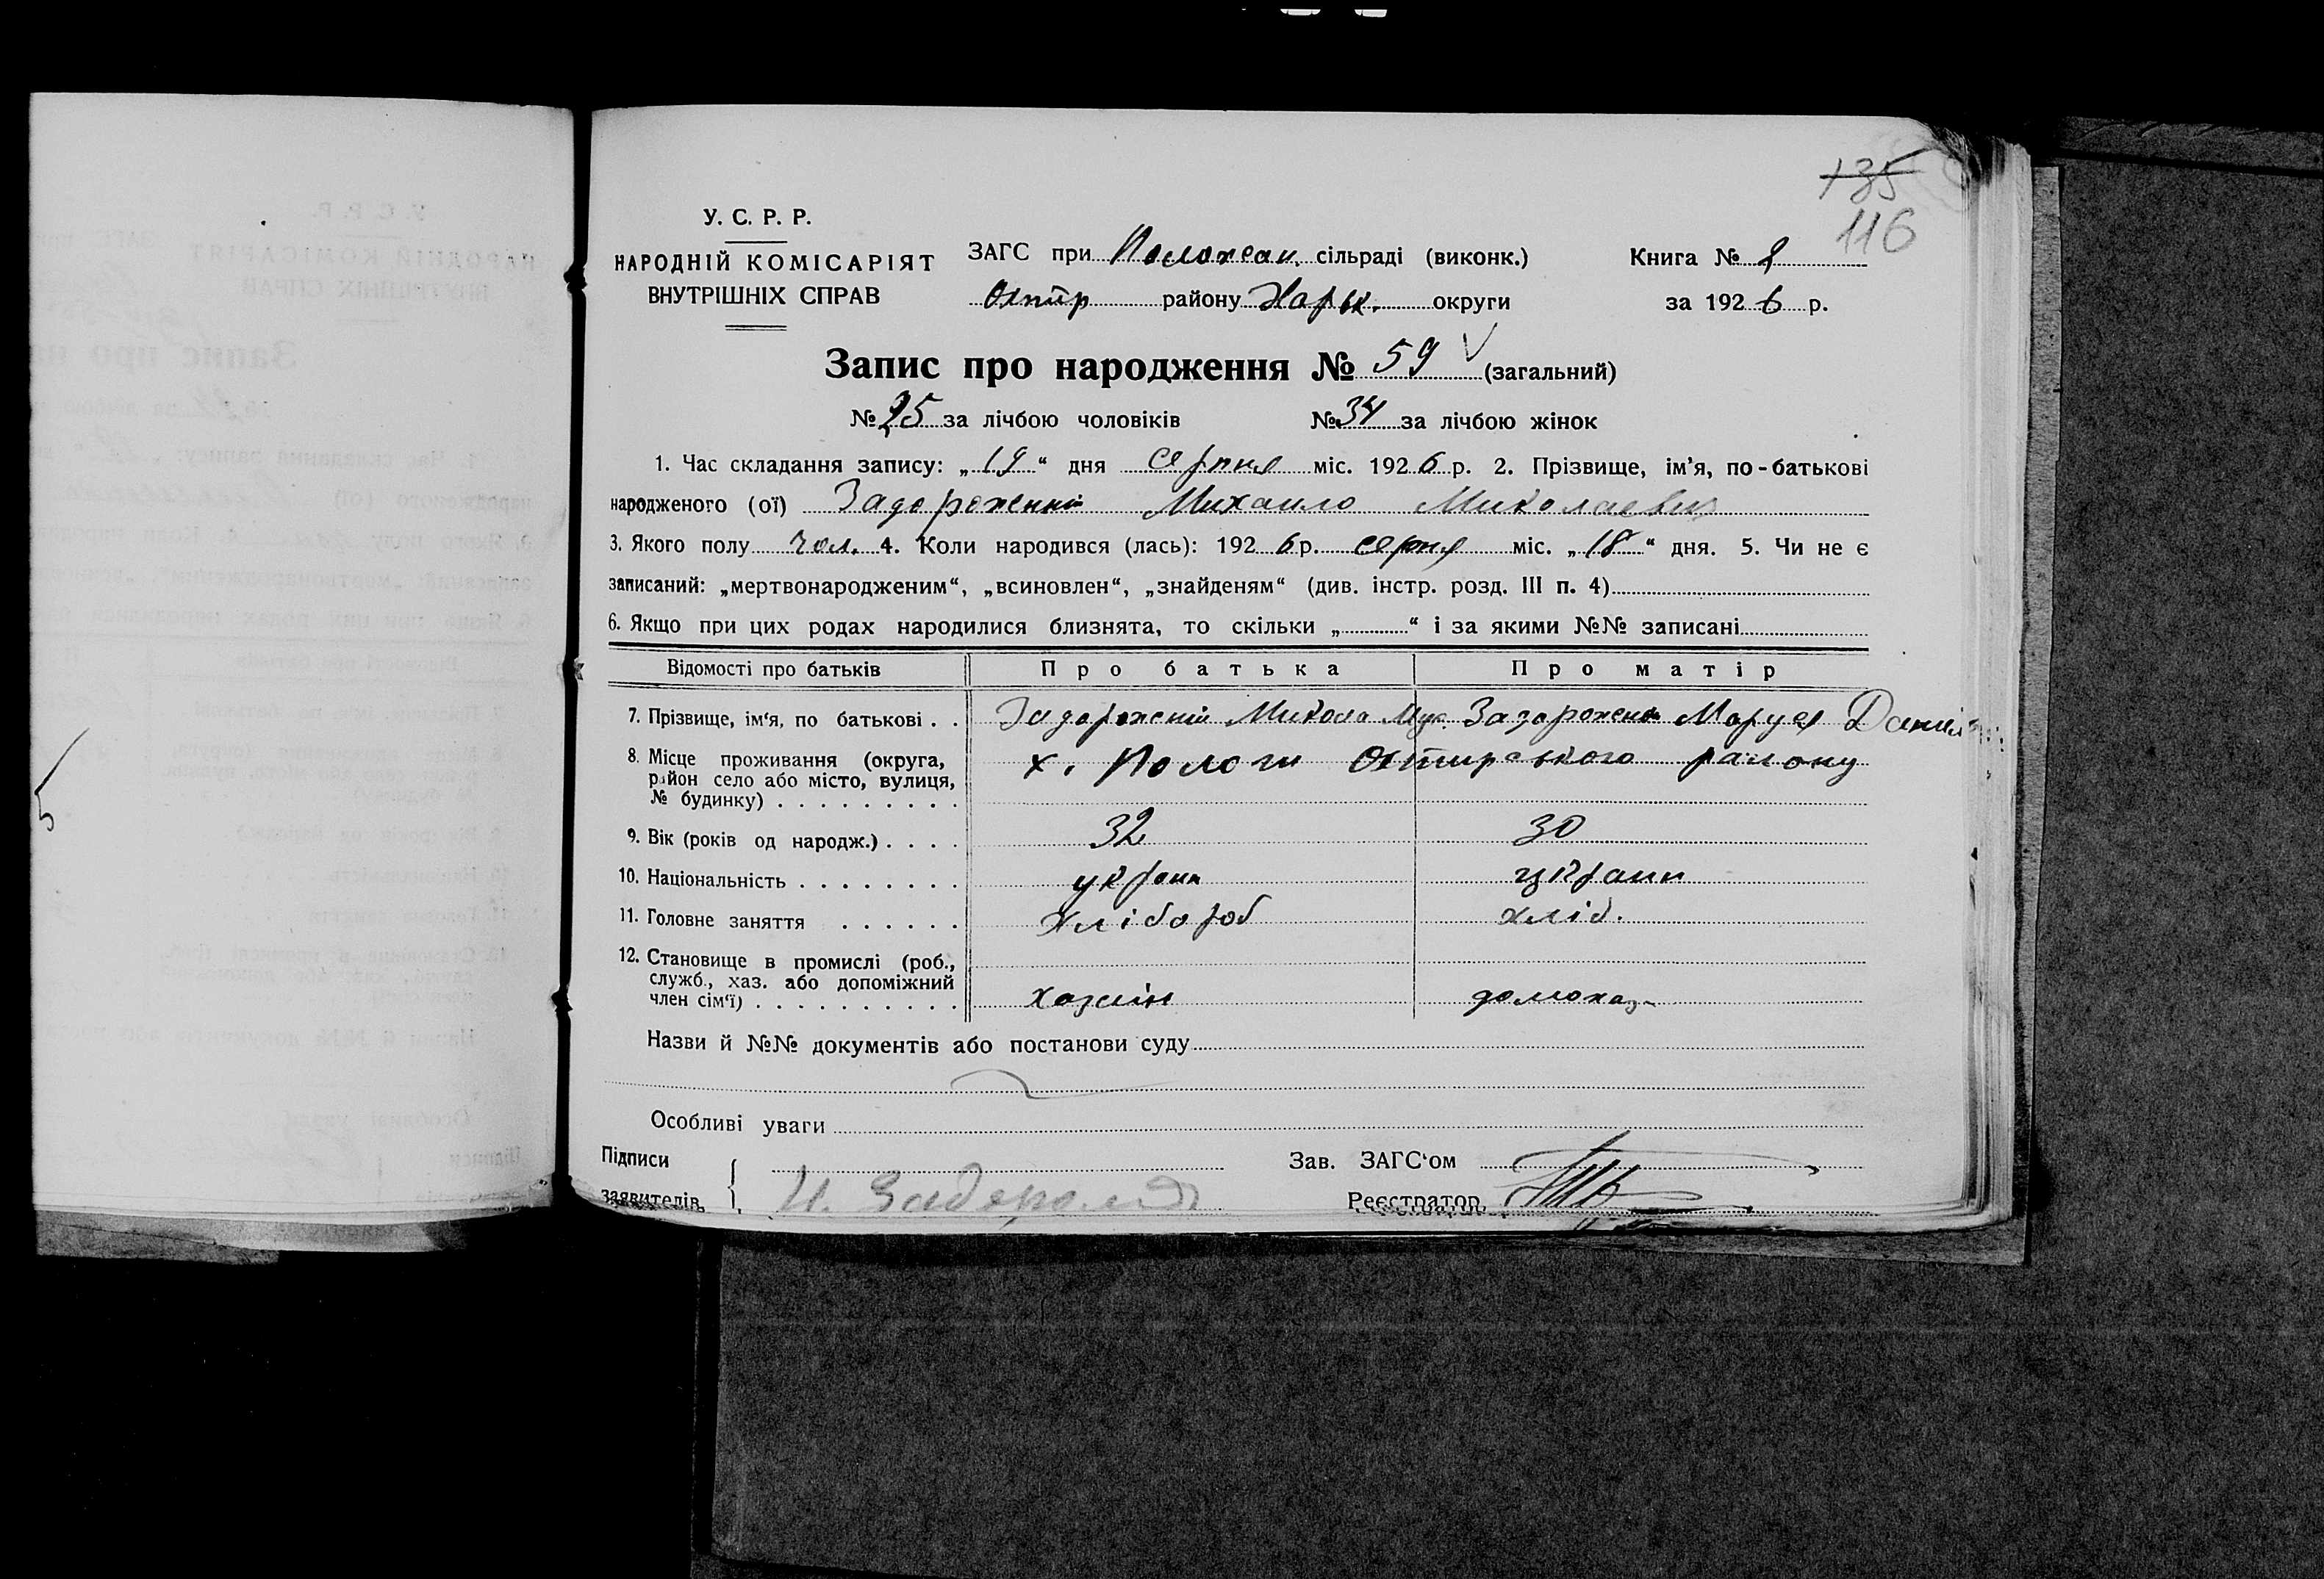 135
116
У. С. Р. Р.
НАРОДНІЙ КОМІСАРІЯТ
ВНУТРІШНІХ СПРАВ
ЗАГС при сільраді (виконк.)
Охтир району Харьк. округи
Книга №
за 1926 р.
Запис про народження № 59 (загальний)
№ 25 за лічбою чоловіків № 34 за лічбою жінок
1. Час складання запису: „19“ дня серпня міс. 1926 р. 2. Прізвище, ім'я, по-батькові
народженого (ої) Задорожний Михаило Миколаевич
3. Якого полу чол. 4. Коли народився (лась): 1926 р. серпня міс. „18“ дня. 5. Чи не є
записаний: „мертвонародженим“, „всиновлен“, „знайденям“ (див. інстр. розд. III п. 4)
6. Якщо при цих родах народилися близнята, то скільки „ “ і за якими №№ записані
Відомості про батьків Про батька Про матір
7. Прізвище, ім'я, по батькові . . Задорожний Микола Задорожна Маруся Данил
8. Місце проживання (округа, х. Пологи Охтирського району
район село або місто, вулиця,
№ будинку) . . . . . . . . . .
9. Вік (років од народж.) . . . . 32 30
10. Національність . . . . . . . . україн україн
11. Головне заняття . . . . . . хлібороб хліб.
12. Становище в промислі (роб.,
служб., хаз. або допоміжний
член сім'ї) . . . . . . . . . . хазяїн домохаз
Назви й №№ документів або постанови суду
Особливі уваги
Підписи
заявителів
Зав. ЗАГС'ом
Реєстратор